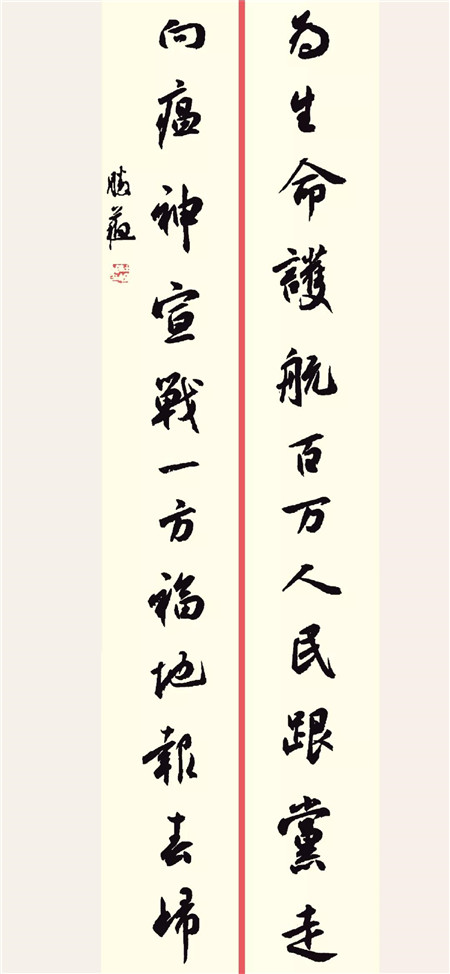 为生命護航百万人民跟黨走
向瘟神宣戰一方福地報春歸